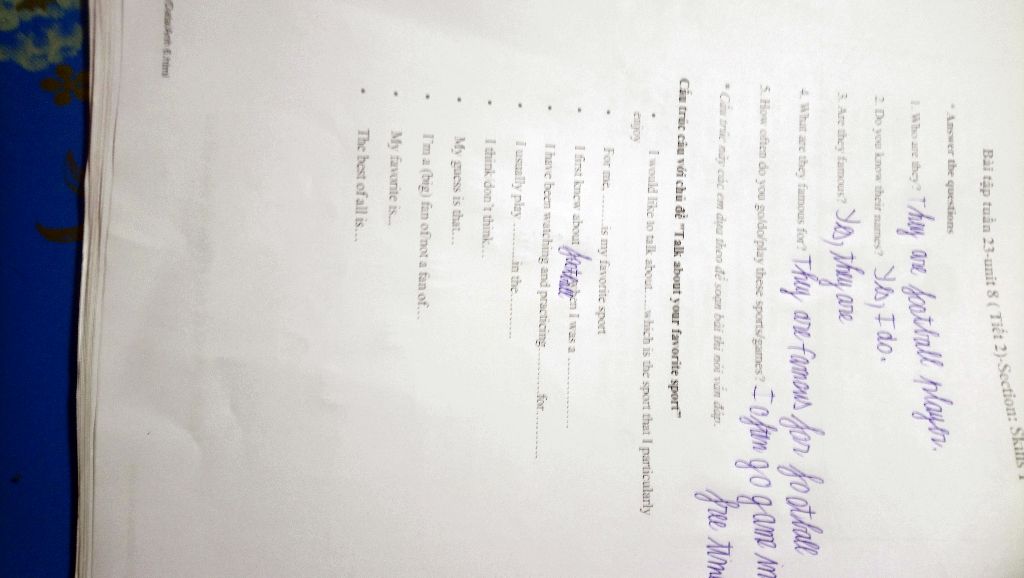 Bài tập tuần 23-unit 8 ( Tiết 2)-Section: Skills 1
* Answer the questions
1. Who are they? They are football player.
2. Do you know their names? Yes, I do.
3. Are they famous? Yes, they are
4. What are they famous for? They are famous for football
5. How often do you go/do/play these sports/games? I often go game in
free time
* Cấu trúc này các em dựa theo để soạn bài thi nói vấn đáp.
Cấu trúc câu với chủ đề "Talk about your favorite sport"
• I would like to talk about.....which is the sport that I particularly
enjoy
• For me, ........is my favorite sport
• I first knew about football when I was a ................
• I have been watching and practicing..........for...........
• I usually play ..........in the..........
• I think/don't think...
• My guess is that....
• I'm a (big) fan of/not a fan of...
• My favorite is...
• The best of all is....